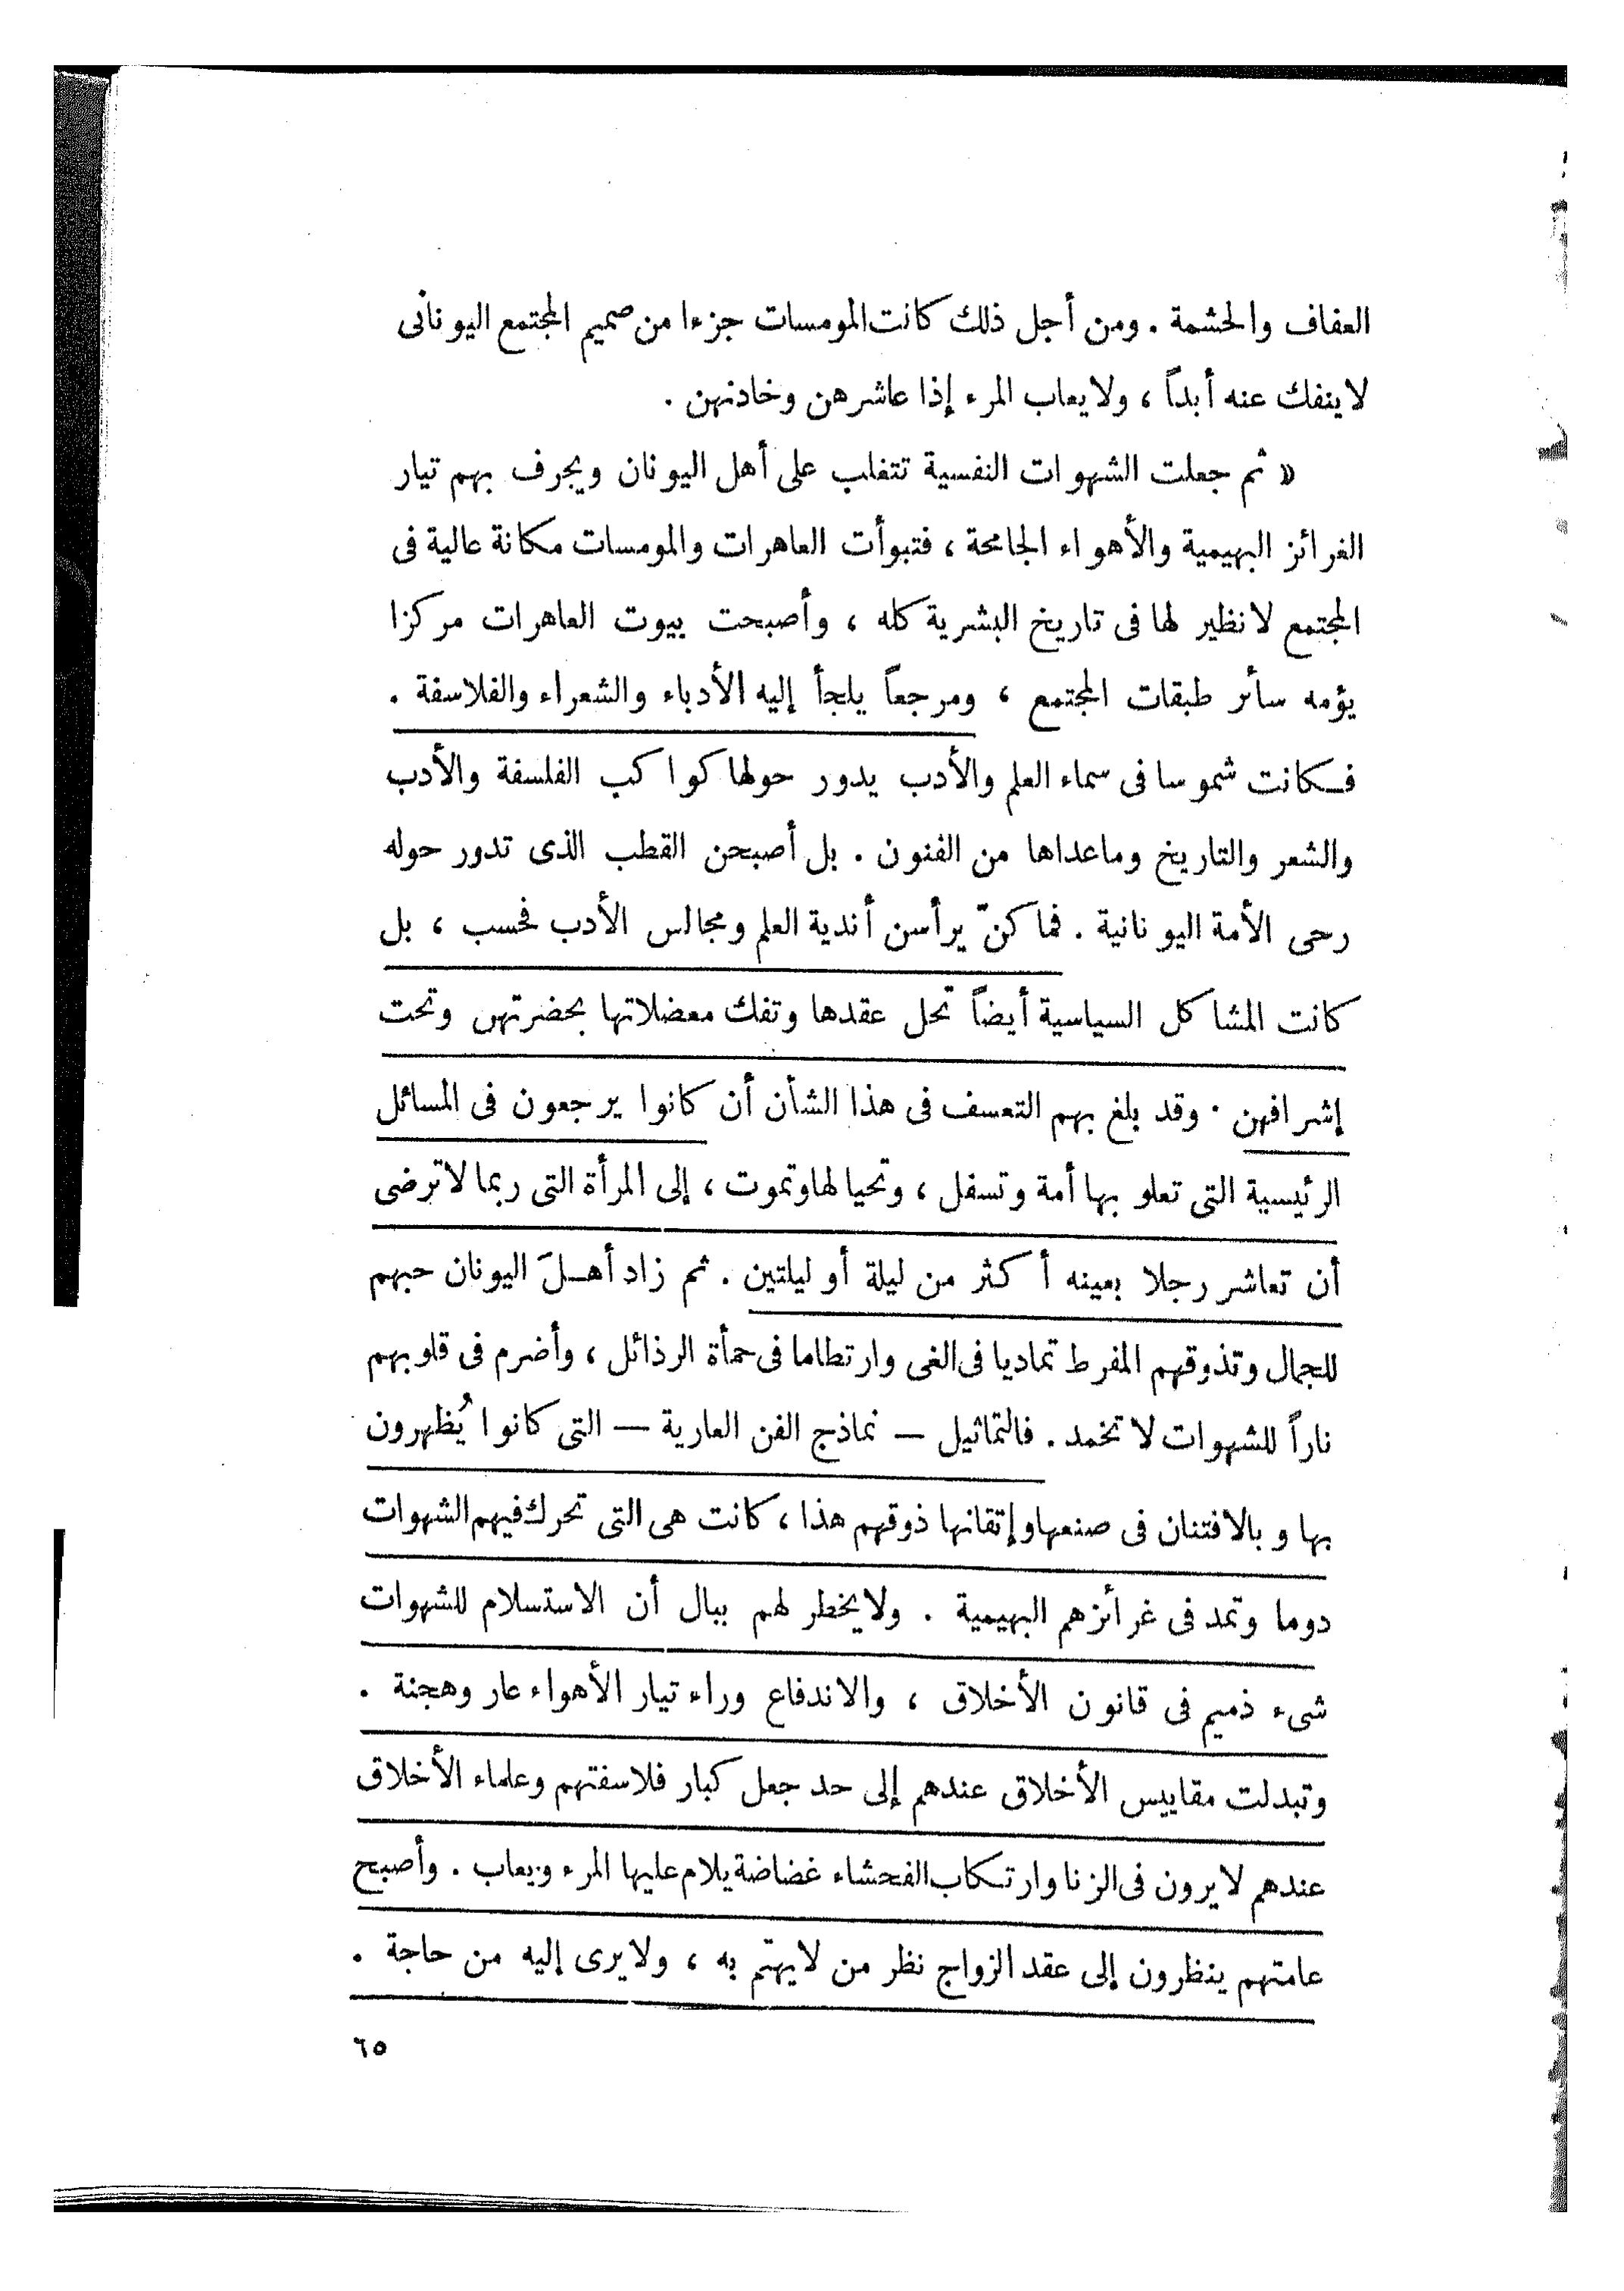 العفاف والحشمة . ومن أجل ذلك كانت المومسات جزءا من صميم المجتمع اليونانى
لاينفك عنه أبداً ، ولايعاب المرء إذا عاشرهن وخادنهن .
« ثم جعلت الشهوات النفسية تتغلب على أهل اليونان ويجرف بهم تيار
الغرائز البهيمية والأهواء الجامحة ، فتبوأت العاهرات والمومسات مكانة عالية فى
المجتمع لانظير لها فى تاريخ البشرية كله ، وأصبحت بيوت العاهرات مركزا
يؤمه سائر طبقات المجتمع ، ومرجعاً يلجأ إليه الأدباء والشعراء والفلاسفة .
فكانت شموسا فى سماء العلم والأدب يدور حولها كواكب الفلسفة والأدب
والشعر والتاريخ وماعداها من الفنون . بل أصبحن القطب الذى تدور حوله
رحى الأمة اليونانية . فما كنّ يرأسن أندية العلم ومجالس الأدب فحسب ، بل
كانت المشاكل السياسية أيضاً تحل عقدها وتفك معضلاتها بحضرتهن وتحت
إشرافهن . وقد بلغ بهم التعسف فى هذا الشأن أن كانوا يرجعون فى المسائل
الرئيسية التى تعلو بها أمة وتسفل ، وتحيا لها وتموت ، إلى المرأة التى ربما لاترضى
أن تعاشر رجلا بعينه أكثر من ليلة أو ليلتين . ثم زاد أهلَ اليونان حبهم
للجمال وتذوقهم المفرط تماديا فى الغى وارتطاما فى حمأة الرذائل ، وأضرم فى قلوبهم
ناراً للشهوات لاتخمد . فالتماثيل — نماذج الفن العارية — التى كانوا يُظهرون
بها وبالافتنان فى صنعها وإتقانها ذوقهم هذا ، كانت هى التى تحرك فيهم الشهوات
دوما وتمد فى غرائزهم البهيمية . ولايخطر لهم ببال أن الاستسلام للشهوات
شىء ذميم فى قانون الأخلاق ، والاندفاع وراء تيار الأهواء عار وهجنة .
وتبدلت مقاييس الأخلاق عندهم إلى حد جعل كبار فلاسفتهم وعلماء الأخلاق
عندهم لايرون فى الزنا وارتكاب الفحشاء غضاضة يلام عليها المرء ويعاب . وأصبح
عامتهم ينظرون إلى عقد الزواج نظر من لايهتم به ، ولايرى إليه من حاجة .
٦٥